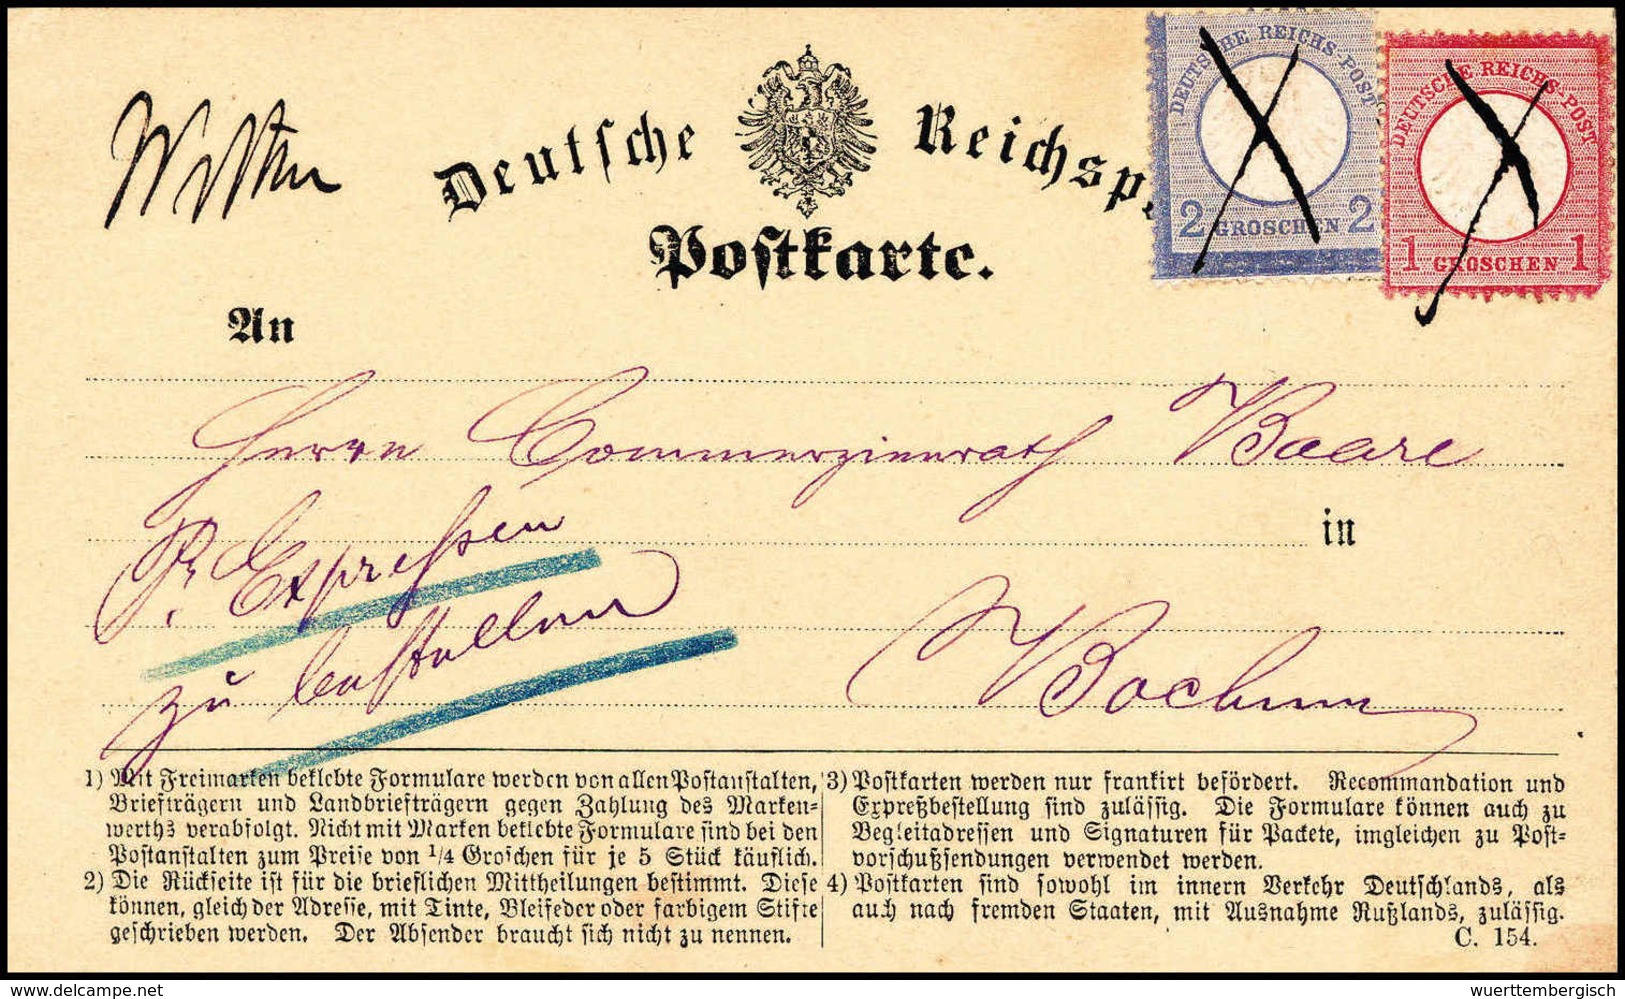 Witten
Deutsche Reichsp
Postkarte.
DEUTSCHE REICHS-POST
2 GROSCHEN 2
DEUTSCHE REICHS-POST
1 GROSCHEN 1
An
Herrn Commerzienrath Baare
Pr. Expressen
zu bestellen
in
Bochum
1) Mit Freimarken beklebte Formulare werden von allen Postanstalten,
Briefträgern und Landbriefträgern gegen Zahlung des Marken-
werths verabfolgt. Nicht mit Marken beklebte Formulare sind bei den
Postanstalten zum Preise von 1/4 Groschen für je 5 Stück käuflich.
2) Die Rückseite ist für die brieflichen Mittheilungen bestimmt. Diese
können, gleich der Adresse, mit Tinte, Bleifeder oder farbigem Stifte
geschrieben werden. Der Absender braucht sich nicht zu nennen.
3) Postkarten werden nur frankirt befördert. Recommandation und
Expreßbestellung sind zulässig. Die Formulare können auch zu
Begleitadressen und Signaturen für Packete, imgleichen zu Post-
vorschußsendungen verwendet werden.
4) Postkarten sind sowohl im innern Verkehr Deutschlands, als
auch nach fremden Staaten, mit Ausnahme Rußlands, zulässig.
C. 154.
delcampe.net
wuerttembergisch